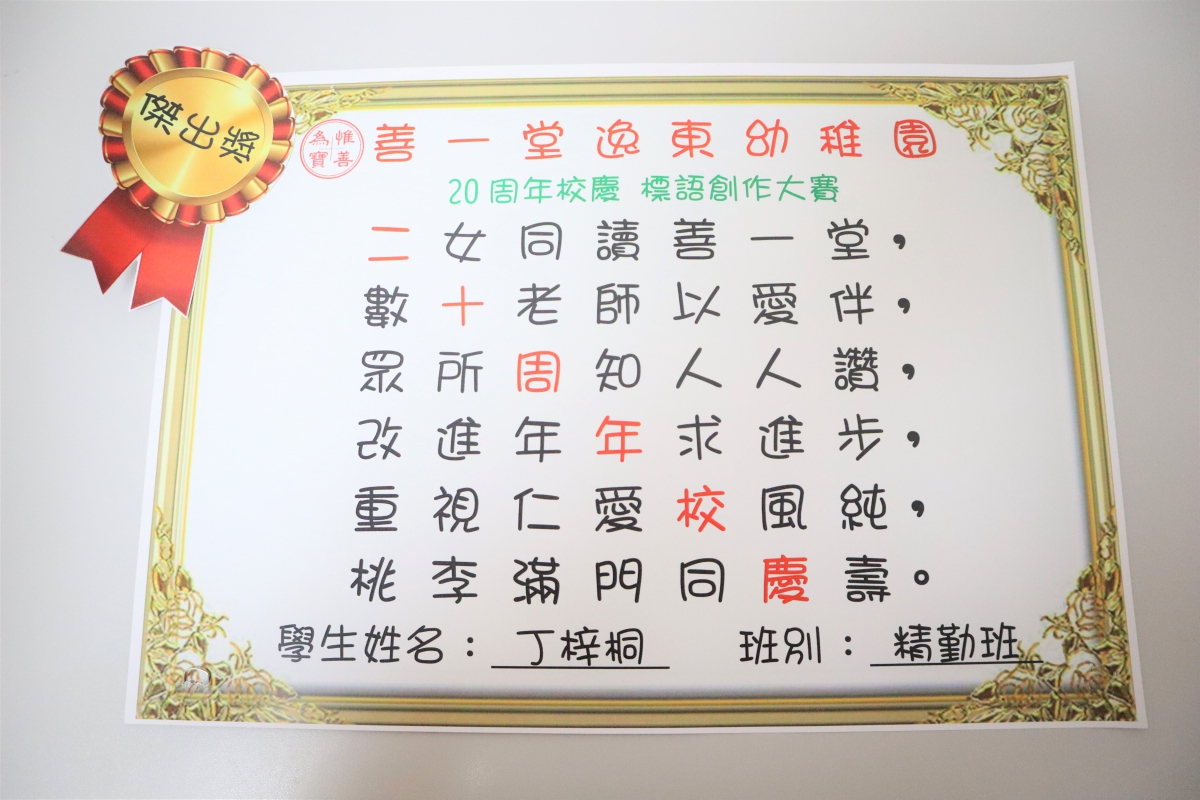 傑出獎
惟善為寶
善一堂逸東幼稚園
20周年校慶 標語創作大賽
二女同讀善一堂，
數十老師以愛伴，
眾所周知人人讚，
改進年年求進步，
重視仁愛校風純，
桃李滿門同慶壽。
學生姓名：丁梓桐 班別：精勤班